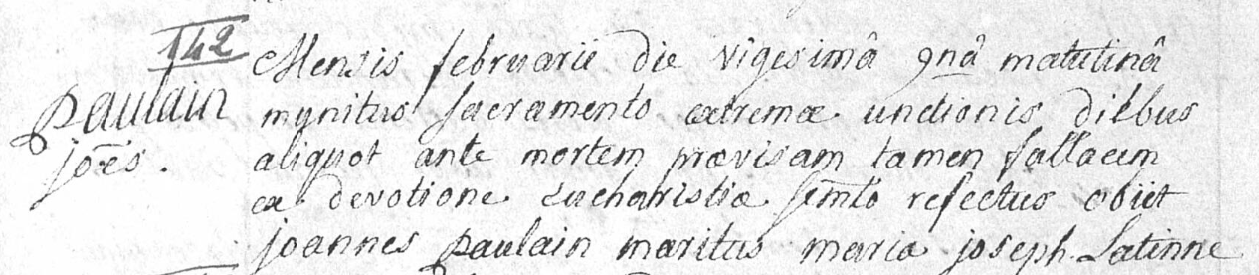 142
Paulain
joēs.
Mensis februarii die vigesimâ 9nâ matutinâ
mynitus sacramento extremæ unctionis diebus
aliquot ante mortem prævisam tamen
ex devotione eucharistiæ sm̄to refectus obiit
joannes paulain maritus maria joseph Latinne